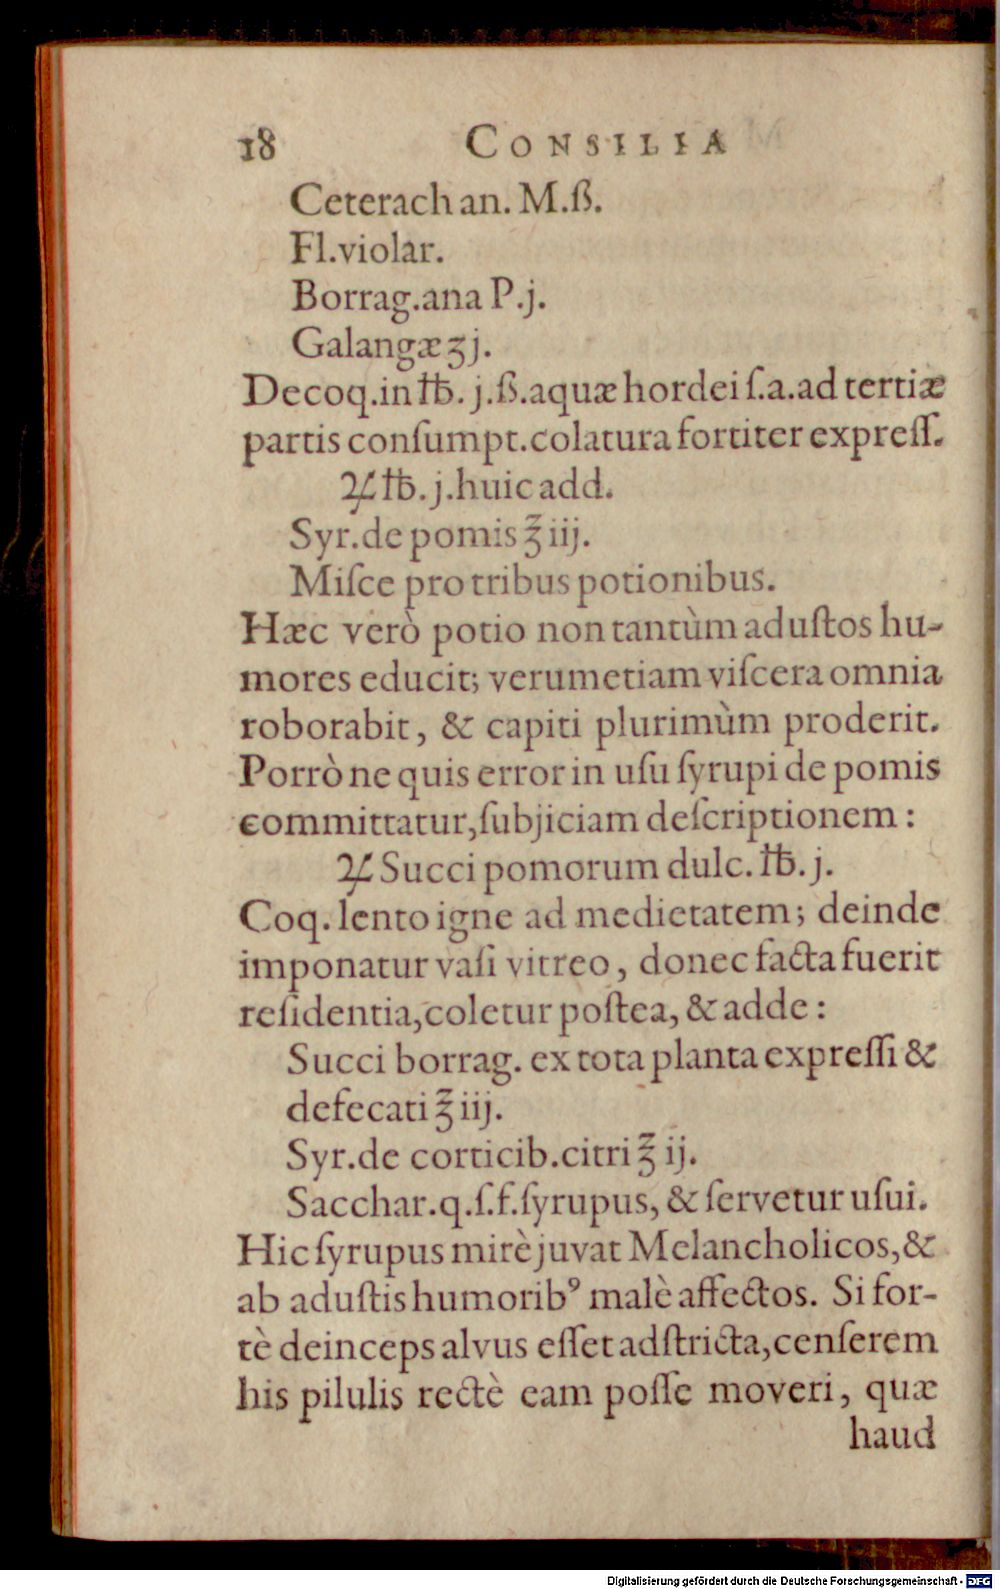 18 CONSILIA
Ceterach an. M.ß.
Fl.violar.
Borrag.ana P.j.
Galangæ ʒ j.
Decoq.in ℔. j.ß.aquæ hordei ſ.a.ad tertiæ
partis conſumpt.colatura fortiter expreſſ.
♃ ℔. j.huic add.
Syr.de pomis ℥ iij.
Miſce pro tribus potionibus.
Hæc verò potio non tantùm aduſtos hu-
mores educit; verumetiam viſcera omnia
roborabit, & capiti plurimùm proderit.
Porrò ne quis error in uſu ſyrupi de pomis
committatur,ſubjiciam deſcriptionem:
♃ Succi pomorum dulc. ℔. j.
Coq. lento igne ad medietatem; deinde
imponatur vaſi vitreo, donec facta fuerit
reſidentia,coletur poſtea, & adde:
Succi borrag. ex tota planta expreſſi &
defecati ℥ iij.
Syr.de corticib.citri ℥ ij.
Sacchar.q.ſ.f.ſyrupus, & ſervetur uſui.
Hic ſyrupus mirè juvat Melancholicos,&
ab aduſtis humoribꝰ malè affectos. Si for-
tè deinceps alvus eſſet adſtricta,cenſerem
his pilulis rectè eam poſſe moveri, quæ
haud
Digitalisierung gefördert durch die Deutsche Forschungsgemeinschaft - DFG